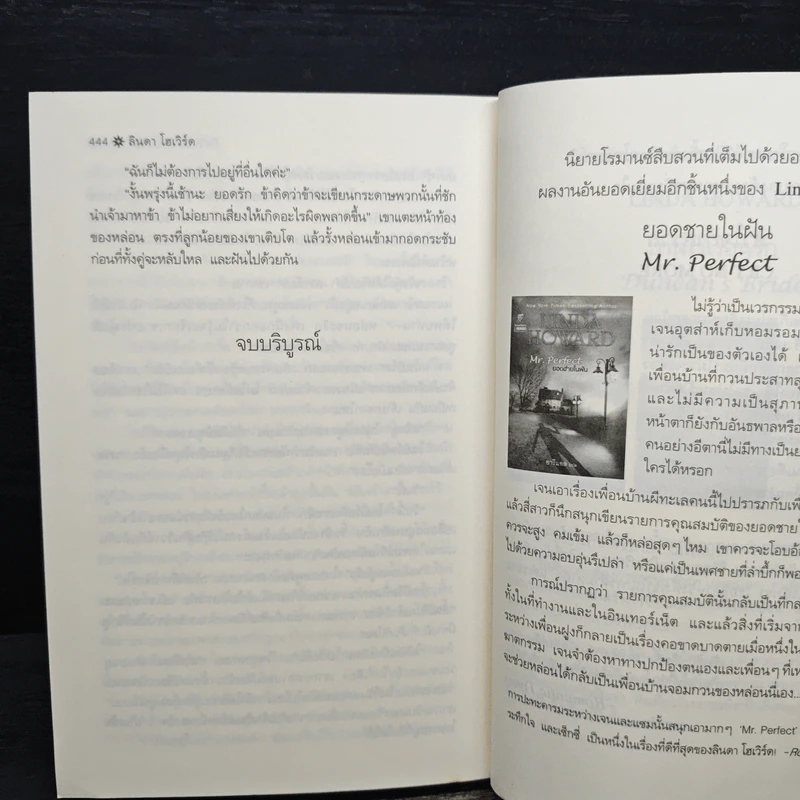 444 ✷ ลินดา โฮเวิร์ด
"ฉันก็ไม่ต้องการไปอยู่ที่อื่นใดค่ะ"
"งั้นพรุ่งนี้เช้านะ ยอดรัก ข้าคิดว่าข้าจะเขียนกระดาษพวกนั้นที่ชัก
นำเจ้ามาหาข้า ข้าไม่อยากเสี่ยงให้เกิดอะไรผิดพลาดขึ้น" เขาแตะหน้าท้อง
ของหล่อน ตรงที่ลูกน้อยของเขาเติบโต แล้วรั้งหล่อนเข้ามากอดกระชับ
ก่อนที่ทั้งคู่จะหลับใหล และฝันไปด้วยกัน
จบบริบูรณ์
นิยายโรมานซ์สืบสวนที่เต็มไปด้วย
ผลงานอันยอดเยี่ยมอีกชิ้นหนึ่งของ
ยอดชายในฝัน
Mr. Perfect
LINDA
HOWARD
Mr. Perfect
ยอดชายในฝัน
ไม่รู้ว่าเป็นเวรกรรม
เจนอุตส่าห์เก็บหอมรอม
น่ารักเป็นของตัวเองได้
เพื่อนบ้านที่กวนประสาท
และไม่มีความเป็นสุภา
หน้าตาก็ยังกับอันธพาลหรือ
คนอย่างอีตานี่ไม่มีทางเป็น
ใครได้หรอก
เจนเอาเรื่องเพื่อนบ้านผีทะเลคนนี้ไปปรารภกับเพื่
แล้วสี่สาวก็นึกสนุกเขียนรายการคุณสมบัติของยอดชาย
ควรจะสูง คมเข้ม แล้วก็หล่อสุดๆ ไหม เขาควรจะโอบอ้
ไปด้วยความอบอุ่นรึเปล่า หรือแค่เป็นเพศชายที่ล่ำบึ้กก็พอ
การณ์ปรากฏว่า รายการคุณสมบัตินั้นกลับเป็นที่
ทั้งในที่ทำงานและในอินเทอร์เน็ต และแล้วสิ่งที่เริ่มจาก
ระหว่างเพื่อนฝูงก็กลายเป็นเรื่องคอขาดบาดตายเมื่อหนึ่งใน
ฆาตกรรม เจนจำต้องหาทางปกป้องตนเองและเพื่อนๆ ที่
จะช่วยหล่อนได้กลับเป็นเพื่อนบ้านจอมกวนของหล่อนนี่เอง...
การปะทะคารมระหว่างเจนและแซมนั้นสนุกเอามากๆ 'Mr. Perfect'
ระทึกใจ และเซ็กซี่ เป็นหนึ่งในเรื่องที่ดีที่สุดของลินดา โฮเวิร์ด!